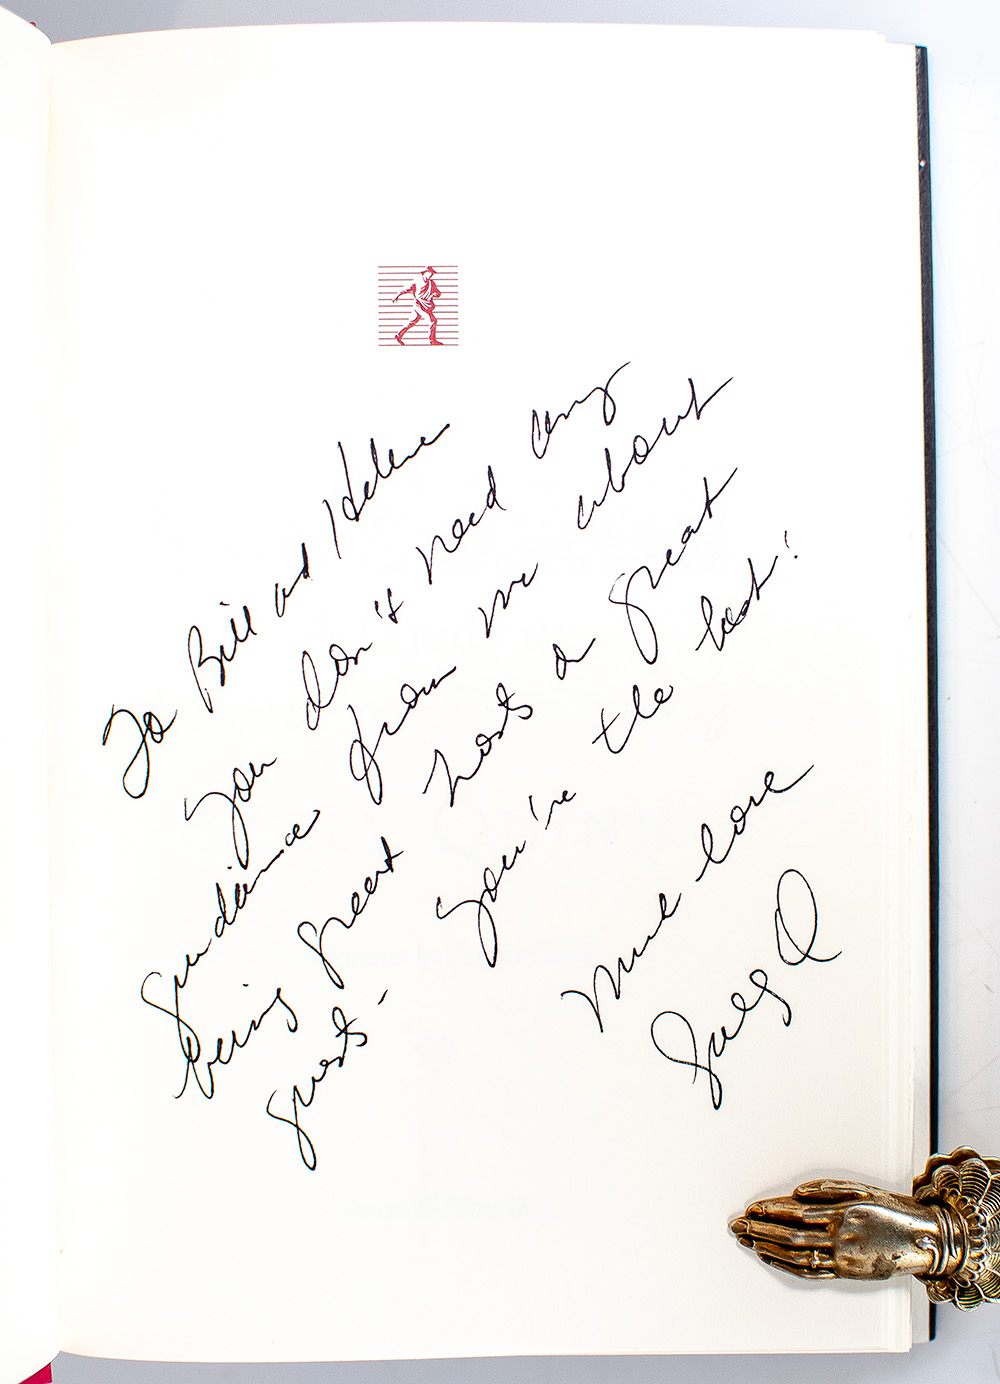 To Bill and Helene
you don't need any
guidance from me about
being great hosts or great
guests - you're the best!
Much love